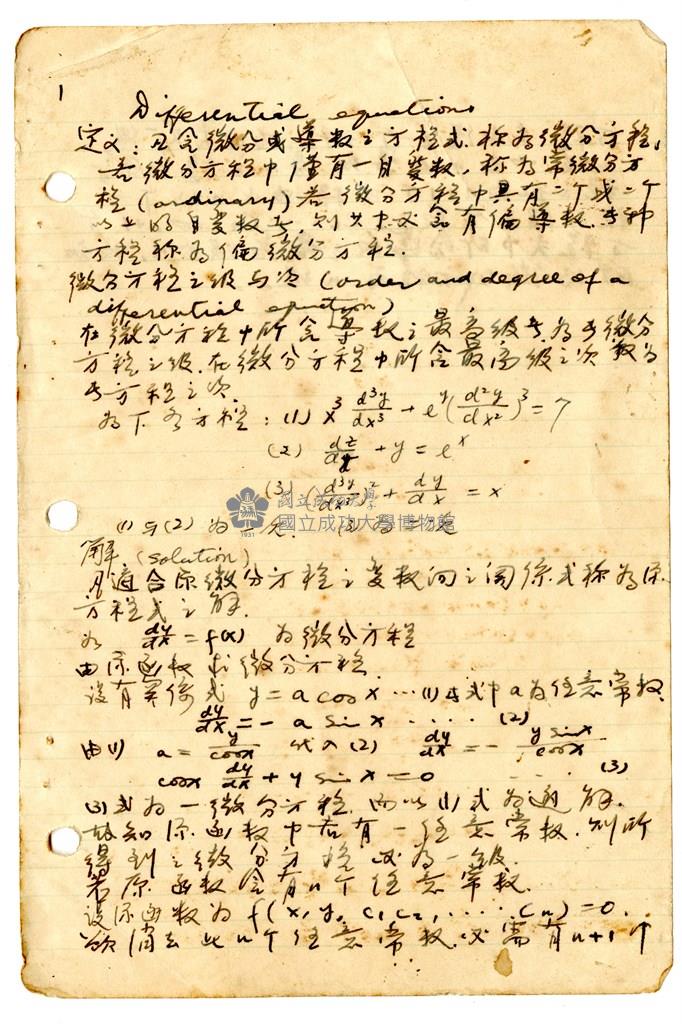 1
Differential equations
定义：凡含微分或導数之方程式.称为微分方程,
若微分方程中僅有一自变数,称为常微分方
程(ordinary)若微分方程中具有二个或二个
以上的自变数者,则其中必含有偏導数.此种
方程称为偏微分方程.
微分方程之级与次 (order and degree of a
differential equation)
在微分方程中所含導数之最高级者.为此微分
方程之级.在微分方程中所含最高级之次数为
此方程之次.
为下各方程：(1) x³ d³y/dx³ + e^y (d²y/dx²)³ = 7
(2) dz/dy + y = e^x
(3) (d³y/dx³)² + dy/dx = x
國立成功大學
國立成功大學博物館
1931
(1)与(2)为一次. (3)为二次
解(solution)
凡適合原微分方程之变数间之関係式称为原
方程式之解.
为 dy/dx = f(x) 为微分方程
由原函数求微分方程
设有関係式 y = a cos x ···(1)此式中a为任意常数.
dy/dx = - a sin x ···· (2)
由(1) a = y/cosx 代入(2) dy/dx = - y sinx/cosx
cosx dy/dx + y sin x = 0 (3)
(3)式为一微分方程.而以(1)式为通解.
故知原函数中若有一任意常数.则所
得到之微分方程必为一级.
若原函数含有n个任意常数.
设原函数为 f(x, y, c₁ c₂, ···· cn) = 0.
欲消去此n个任意常数.必需有n+1个